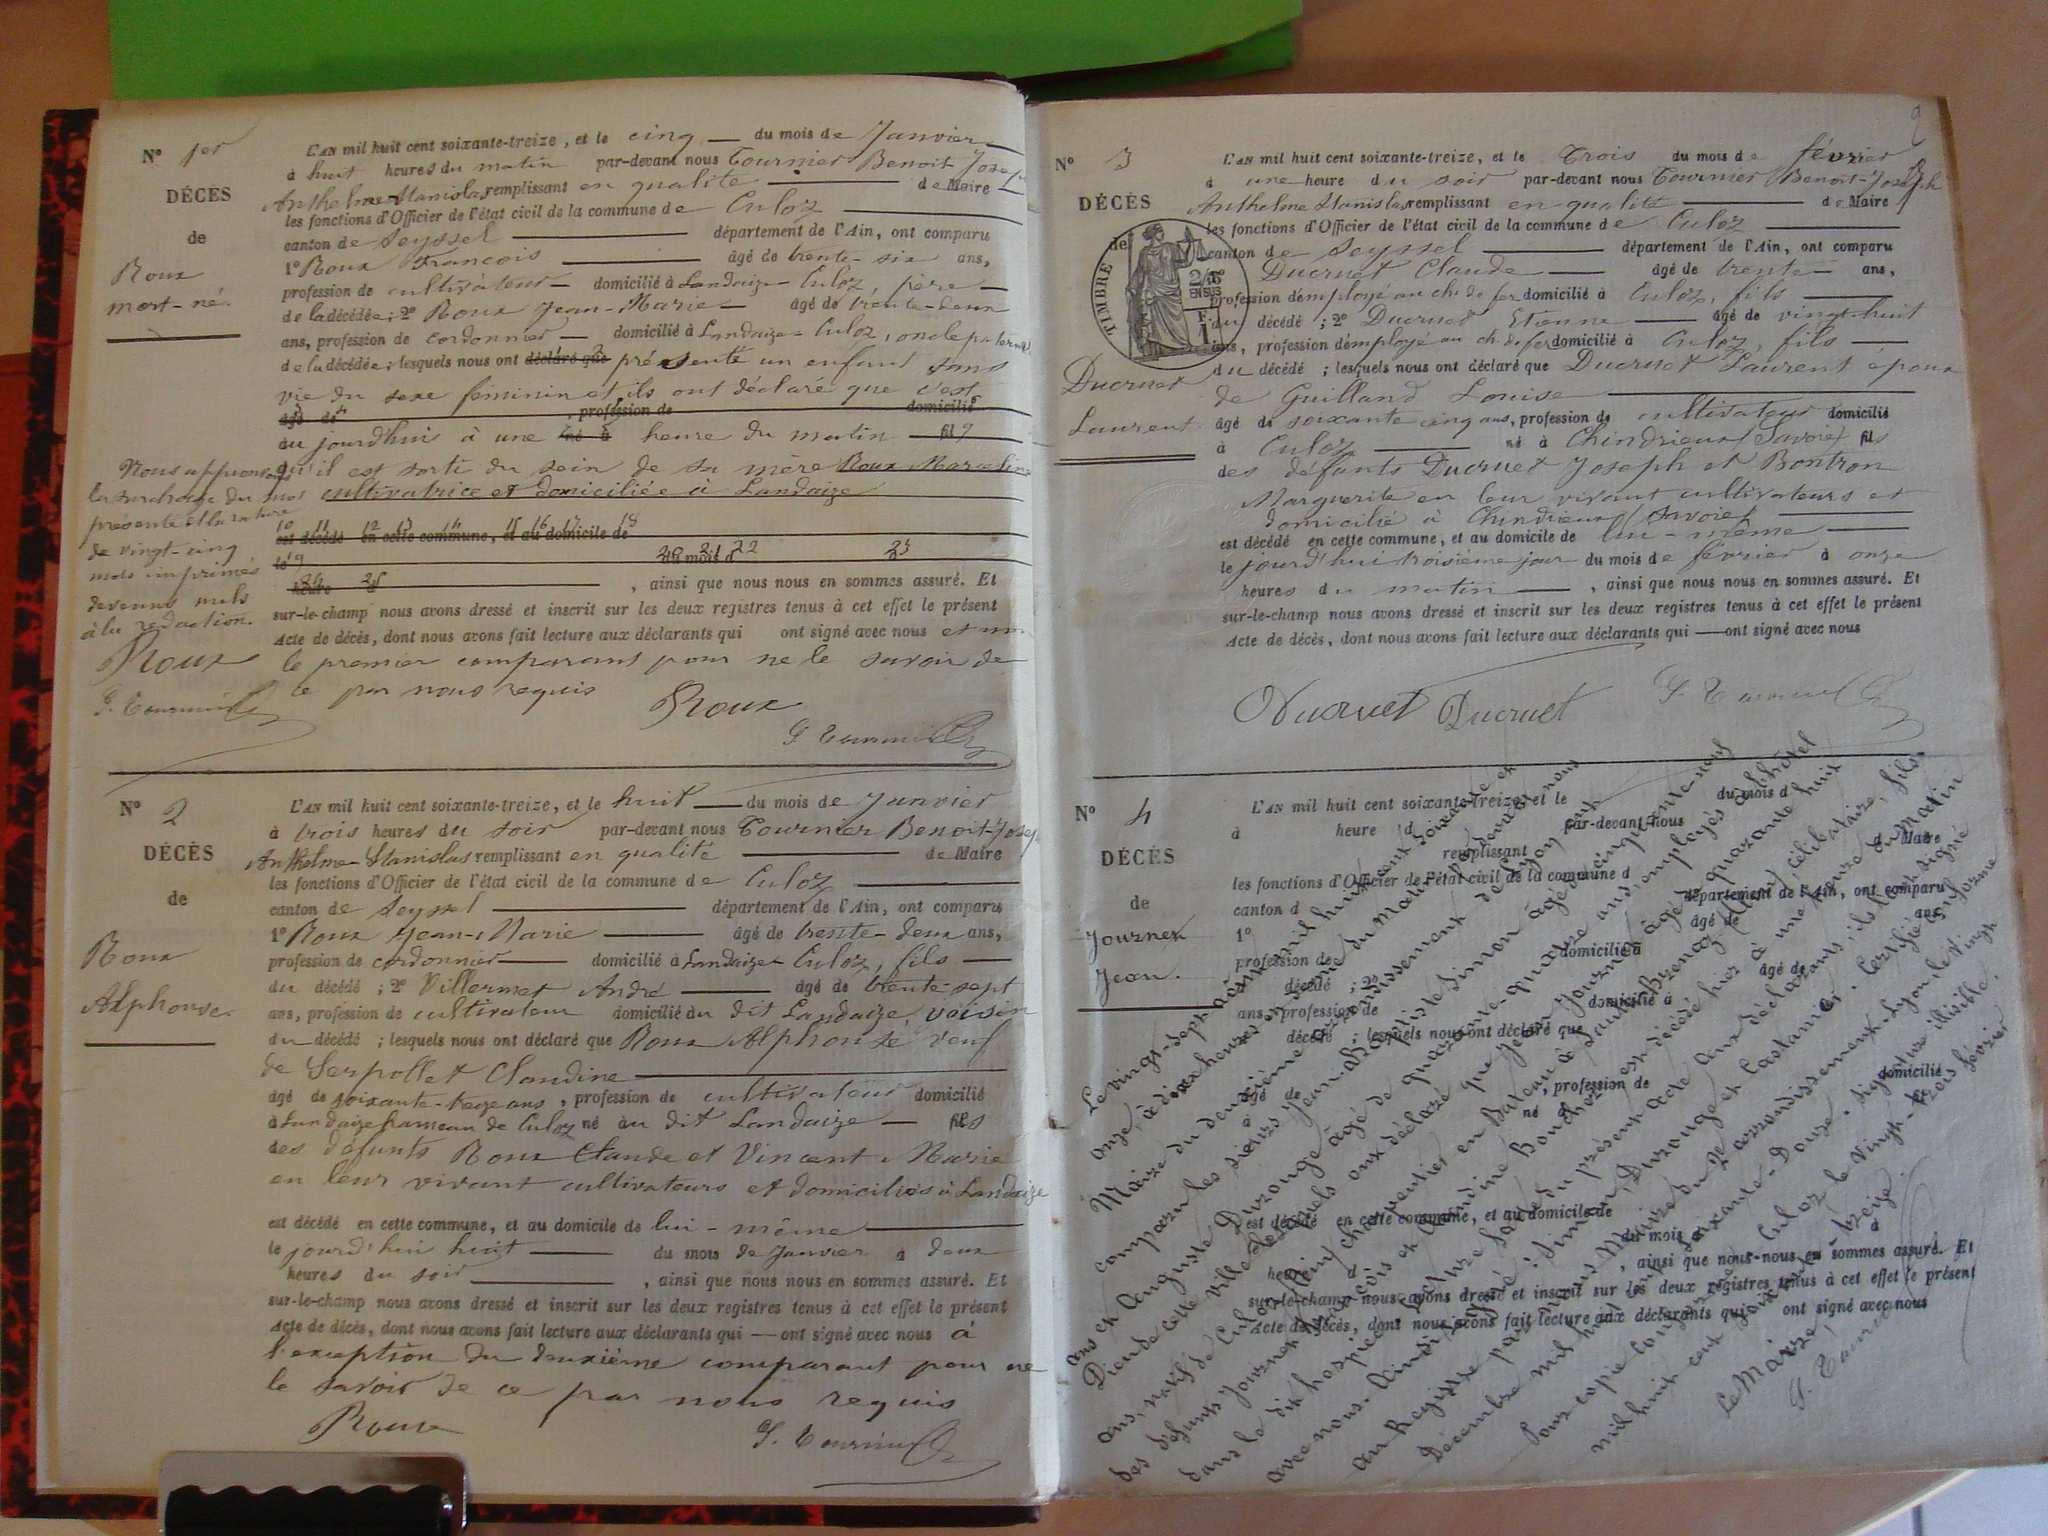 N° 1er
DÉCÈS
de
Roux
mort-né.
L'AN mil huit cent soixante-treize, et le cinq du mois de Janvier
à huit heures du matin par-devant nous Tournier Benoit-Joseph
Anthelme Stanislas remplissant en qualité de Maire
les fonctions d'Officier de l'état civil de la commune de Culoz
canton de Seyssel département de l'Ain, ont comparu
1° Roux François âgé de trente-six ans,
profession de cultivateur domicilié à Landaize-Culoz, père
de la décédée; 2° Roux Jean-Marie âgé de trente-deux
ans, profession de cordonnier domicilié à Landaize-Culoz, oncle paternel
de la décédée; lesquels nous ont déclaré que présenté un enfant sans
vie du sexe féminin et ils ont déclaré que c'est
âgé de , profession de domicilié
aujourd'hui à une né à heure du matin fil
qu'il est sorti du sein de sa mère Roux Marceline
cultivatrice et domiciliée à Landaize
10 11 12 13 14 15 16 17 18
est décédé en cette commune, et au domicile de
le 19 20 21 22 du mois d 23 à
24 25 heure d , ainsi que nous nous en sommes assuré. Et
sur-le-champ nous avons dressé et inscrit sur les deux registres tenus à cet effet le présent
Acte de décès, dont nous avons fait lecture aux déclarants qui ont signé avec nous et non
le premier comparant pour ne le savoir de
ce par nous requis
Roux
G. Tournier
Nous approuvons
la surcharge du mot
présenté et la rature
de vingt-cinq
mots imprimés
devenus nuls
à la rédaction.
Roux
G. Tournier
N° 2
DÉCÈS
de
Roux
Alphonse.
L'AN mil huit cent soixante-treize, et le huit du mois de Janvier
à trois heures du soir par-devant nous Tournier Benoit-Joseph
Anthelme-Stanislas remplissant en qualité de Maire
les fonctions d'Officier de l'état civil de la commune de Culoz
canton de Seyssel département de l'Ain, ont comparu
1° Roux Jean-Marie âgé de trente-deux ans,
profession de cordonnier domicilié à Landaize Culoz, fils
du décédé; 2° Villermet André âgé de trente-sept
ans, profession de cultivateur domicilié au dit Landaize, voisin
du décédé; lesquels nous ont déclaré que Roux Alphonse veuf
de Serpollet Claudine
âgé de soixante-treize ans, profession de cultivateur domicilié
à Landaize hameau de Culoz né au dit Landaize fils
des défunts Roux Claude et Vincent Marie
en leur vivant cultivateurs et domiciliés à Landaize
est décédé en cette commune, et au domicile de lui-même
le jourd'hui huit du mois de Janvier à deux
heures du soir , ainsi que nous nous en sommes assuré. Et
sur-le-champ nous avons dressé et inscrit sur les deux registres tenus à cet effet le présent
Acte de décès, dont nous avons fait lecture aux déclarants qui ont signé avec nous à
l'exception du deuxième comparant pour ne
le savoir de ce par nous requis
Roux
G. Tournier
2
N° 3
DÉCÈS
de
TIMBRE
2/10 EN SUS
Ducruet
Laurent
L'AN mil huit cent soixante-treize, et le Trois du mois de février
à une heure du soir par-devant nous Tournier Benoit-Joseph
Anthelme Stanislas remplissant en qualité de Maire
les fonctions d'Officier de l'état civil de la commune de Culoz
canton de Seyssel département de l'Ain, ont comparu
1° Ducruet Claude âgé de trente ans,
profession d'employé au ch. de fer domicilié à Culoz, fils
du décédé; 2° Ducruet Etienne âgé de vingt-huit
ans, profession d'employé au ch. de fer domicilié à Culoz, fils
du décédé; lesquels nous ont déclaré que Ducruet Laurent époux
de Guilland Louise
âgé de soixante cinq ans, profession de cultivateur domicilié
à Culoz né à Chindrieux (Savoie) fils
des défunts Ducruet Joseph et Bontron
Marguerite en leur vivant cultivateurs et
domicilié à Chindrieux (Savoie)
est décédé en cette commune, et au domicile de lui-même
le jourd'hui troisième jour du mois de février à onze
heures du matin , ainsi que nous nous en sommes assuré. Et
sur-le-champ nous avons dressé et inscrit sur les deux registres tenus à cet effet le présent
Acte de décès, dont nous avons fait lecture aux déclarants qui ont signé avec nous
Ducruet Ducruet G. Tournier
N° 4
DÉCÈS
de
Journet
Jean.
L'AN mil huit cent soixante-treize, et le du mois d
à heure d par-devant nous
remplissant de Maire
les fonctions d'Officier de l'état civil de la commune d
canton d département de l'Ain, ont comparu
1° âgé de ans
profession de domicilié à
décédé; 2° âgé de
ans, profession de domicilié à
décédé; lesquels nous ont déclaré que
âgé de , profession de domicilié
à né à fil
est décédé en cette commune, et au domicile de
le du mois d à
heure d , ainsi que nous-nous en sommes assuré. Et
sur-le-champ nous avons dressé et inscrit sur les deux registres tenus à cet effet le présent
Acte de décès, dont nous avons fait lecture aux déclarants qui ont signé avec nous
Le vingt-sept mil huit cent soixante et
onze, à dix heures du matin, devant nous
Maire du deuxième arrondissement de Lyon, ont
comparu les sieurs Jean-Baptiste Simon âgé de cinquante-neuf
ans et Auguste Durouge âgé de quarante-quatre ans, employés à l'hôtel
Dieu de cette ville, lesquels ont déclaré que Jean Journet âgé de quarante huit
ans, natif de Culoz (Ain) charpentier en Bateau à célibataire, fils
des défunts Journet François et Claudine Bouchez, est décédé hier à une heure du matin
dans le dit hospice. Lecture faite du présent acte aux déclarants, ils l'ont signé
avec nous. Ainsi signé: Simon, Durouge et Castanier. Certifié conforme
au Registre par nous Maire du 2e arrondissement. Lyon, le vingt
Décembre mil huit cent soixante-Douze. Signature illisible.
Pour copie conforme Culoz le Vingt-trois février
mil huit cent soixante-treize.
Le Maire
G. Tournier